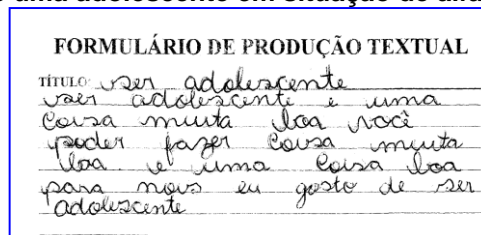 uma adolescente em situação de
FORMULÁRIO DE PRODUÇÃO TEXTUAL
TÍTULO: ser adolescente
ser adolescente e uma
Coisa muita boa você
poder fazer Coisa muita
boa e uma Coisa boa
para novs eu gosto de ser
adolescente